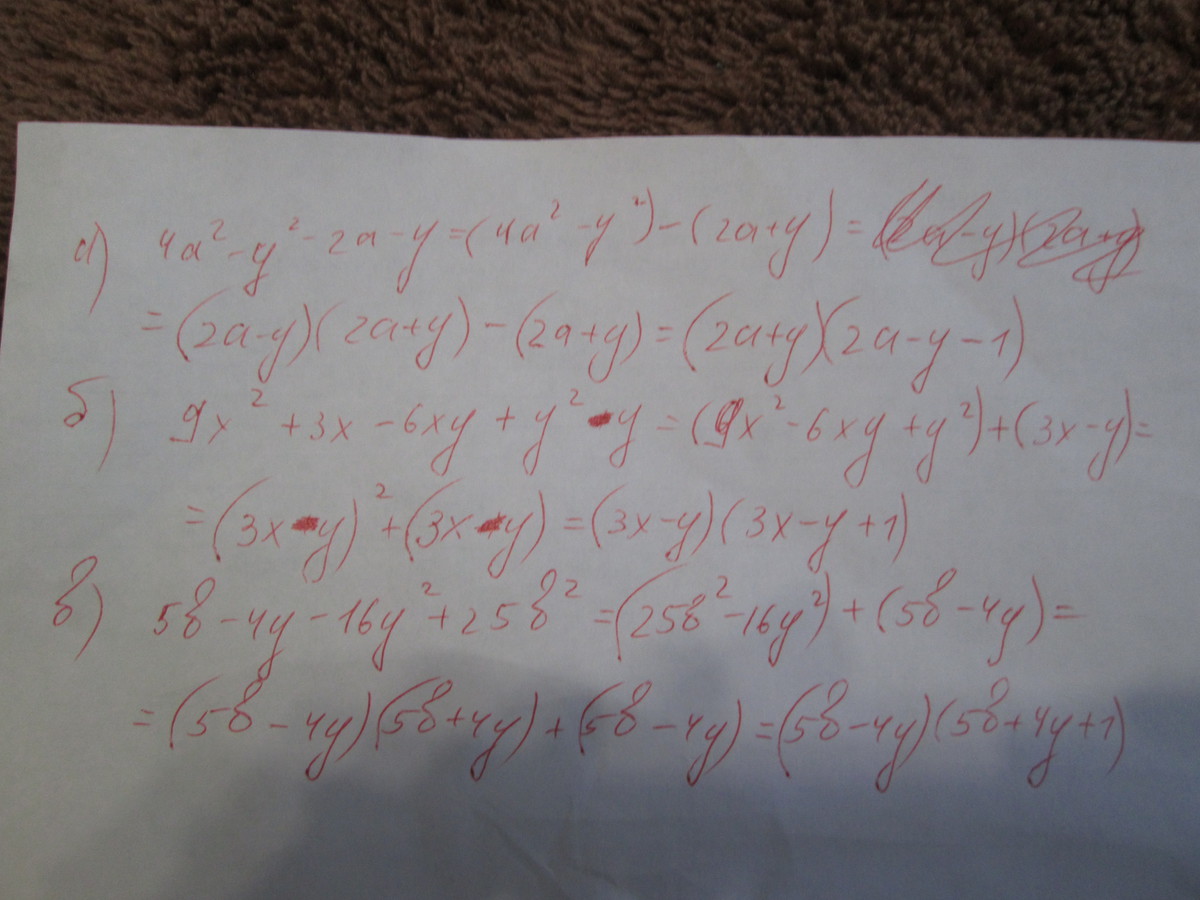 а) 4a² - y² - 2a - y = (4a² - y²) - (2a + y) =
= (2a - y)(2a + y) - (2a + y) = (2a + y)(2a - y - 1)
б) 9x² + 3x - 6xy + y² - y = (9x² - 6xy + y²) + (3x - y) =
= (3x - y)² + (3x - y) = (3x - y)(3x - y + 1)
в) 5в - 4y - 16y² + 25в² = (25в² - 16y²) + (5в - 4y) =
= (5в - 4y)(5в + 4y) + (5в - 4y) = (5в - 4y)(5в + 4y + 1)